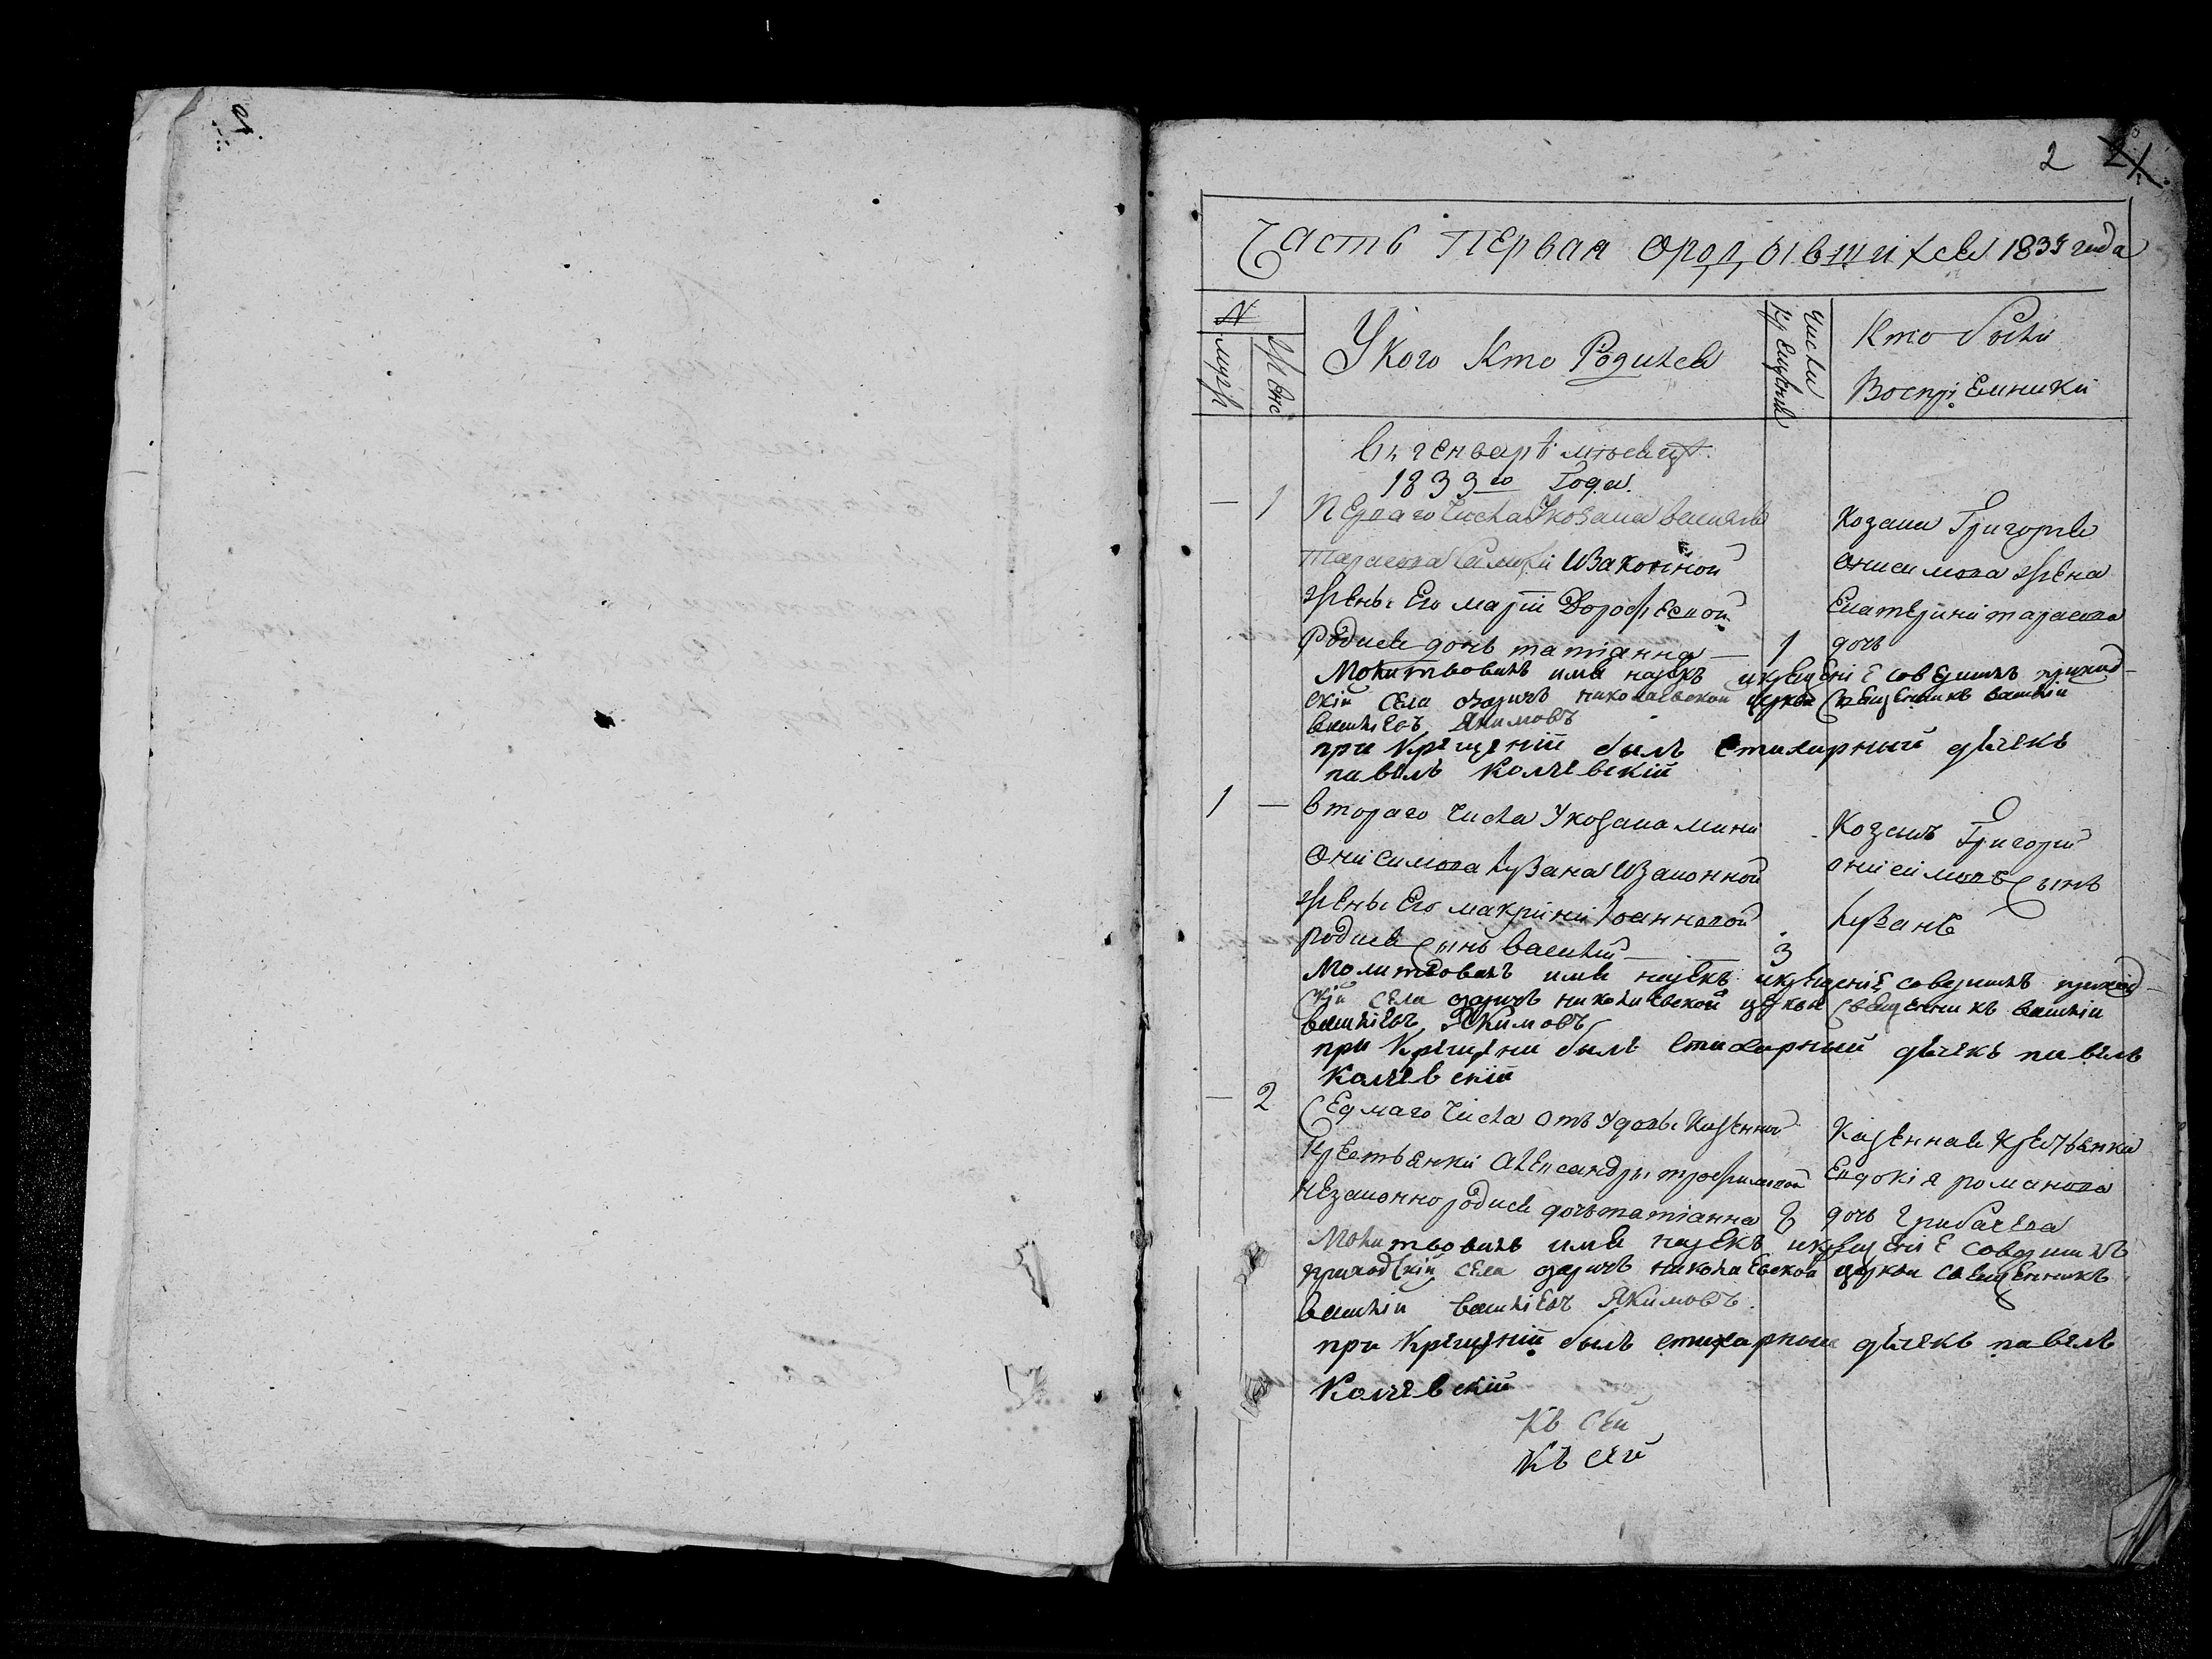 2
Часть Первая о родившихся 1839 года
№
муж
жен
У кого Кто Родился
Числа крещения
Кто были
Воспріемники
Въ генварѣ мѣсяцѣ
1839го Года
— 1
Первого числа У козака василія
Тарасова изаконной
жены Его маріи Дорофеевой
Родися дочь татіанна — 1
Козака Григорія
онисимова жена
Екатерини тарасова
дочь
Молитвовалъ имя нарекъ и крещеніе совершилъ приход-
скій села озаричъ николаевской церкви Священникъ василій
василіевъ Якимовъ
при Крещеніи былъ стихарный дьячекъ
павелъ Колчевскій
1 —
втораго числа У козака мини
Онисимова Кузана изаконной
жены Его макрини Іоанновой
родися Сынъ василій — 3
Козакъ Григорій
онисимовъ Сынъ
Кузанъ
Молитвовалъ имя нарекъ и крещеніе совершилъ приход-
скій села озаричъ николаевской церкви Священникъ василій
василіевъ Якимовъ
при Крещени былъ Стихарный дьячекъ павелъ
Колчевскій
— 2
Седмаго числа отъ удовы Казенной
Крестьянки Александры трофимовой
незаконно родися дочь татіанна 8
Казенная Крестьянка
Евдокія романова
дочь Грибачева
Молитвовалъ имя нарекъ и крещеніе совершилъ
приходскій села озаричъ николаевской церкви священникъ
василій василіевъ Якимовъ
при Крещеніи былъ стихарный дьячекъ павелъ
Колчевскій
Къ сей
Къ сей